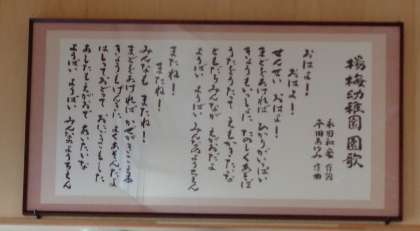 楊梅幼稚園 園歌
作詞
作曲
おはよ!
おはよ!
せんせい おはよ!
まどをあければ ひかりがいっぱい
きょうもいっしょに たのしくあそぼ
うたをうたって えもかきたいな
ともだちみんなが えがおだよ
ようばい ようばい みんなのようちえん
またね!
またね!
みんなも またね!
まどをあければ かぜが
きょうもげんきに よくあそんだよ
はしっておどって おにごっこもした
あしたもえがおで あいたいな
ようばい ようばい みんなのようちえん